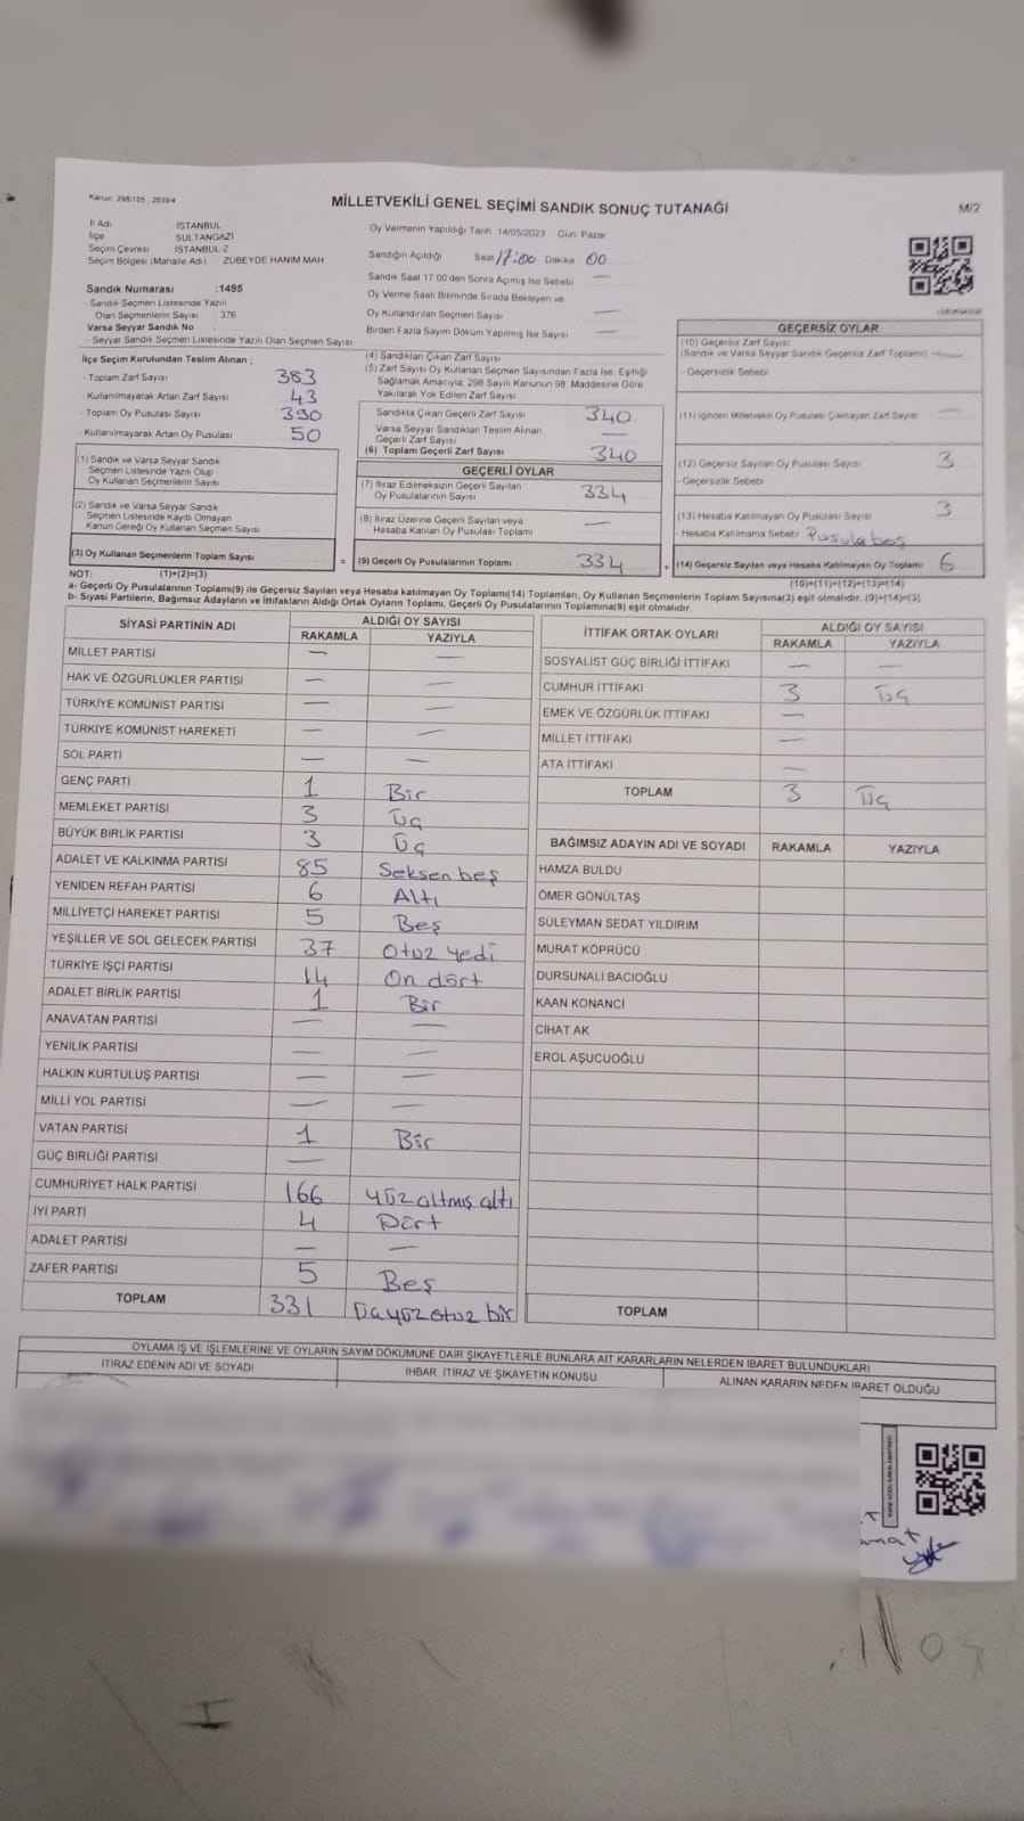 Kanun: 298/105, 2839/4
MİLLETVEKİLİ GENEL SEÇİMİ SANDIK SONUÇ TUTANAĞI
M/2
İl Adı İSTANBUL
İlçe SULTANGAZİ
Seçim Çevresi İSTANBUL-2
Seçim Bölgesi (Mahalle Adı) ZÜBEYDE HANIM MAH
Sandık Numarası :1495
Sandık Seçmen Listesinde Yazılı
Olan Seçmenlerin Sayısı 376
Varsa Seyyar Sandık No
Seyyar Sandık Seçmen Listesinde Yazılı Olan Seçmen Sayısı
Oy Vermenin Yapıldığı Tarih 14/05/2023 Gün Pazar
Sandığın Açıldığı Saat 17:00 Dakika 00
Sandık Saat 17:00'den Sonra Açılmış İse Sebebi —
Oy Verme Saati Bitiminde Sırada Bekleyen ve
Oy Kullandırılan Seçmen Sayısı —
Birden Fazla Sayım Döküm Yapılmış İse Sayısı —
İlçe Seçim Kurulundan Teslim Alınan ;
- Toplam Zarf Sayısı 383
- Kullanılmayarak Artan Zarf Sayısı 43
Toplam Oy Pusulası Sayısı 390
- Kullanılmayarak Artan Oy Pusulası 50
(1) Sandık ve Varsa Seyyar Sandık
Seçmen Listesinde Yazılı Olup
Oy Kullanan Seçmenlerin Sayısı
(2) Sandık ve Varsa Seyyar Sandık
Seçmen Listesinde Kayıtlı Olmayan
Kanun Gereği Oy Kullanan Seçmen Sayısı
(3) Oy Kullanan Seçmenlerin Toplam Sayısı
(1)+(2)=(3)
(4) Sandıktan Çıkan Zarf Sayısı
(5) Zarf Sayısı Oy Kullanan Seçmen Sayısından Fazla İse; Eşitliği
Sağlamak Amacıyla; 298 Sayılı Kanunun 98. Maddesine Göre
Yakılarak Yok Edilen Zarf Sayısı
Sandıkta Çıkan Geçerli Zarf Sayısı 340
Varsa Seyyar Sandıktan Teslim Alınan
Geçerli Zarf Sayısı —
(6) Toplam Geçerli Zarf Sayısı 340
GEÇERLİ OYLAR
(7) İtiraz Edilmeksizin Geçerli Sayılan
Oy Pusulalarının Sayısı 334
(8) İtiraz Üzerine Geçerli Sayılan veya
Hesaba Katılan Oy Pusulası Toplamı —
= (9) Geçerli Oy Pusulalarının Toplamı 334
GEÇERSİZ OYLAR
(10) Geçersiz Zarf Sayısı
(Sandık ve Varsa Seyyar Sandık Geçersiz Zarf Toplamı) —
- Geçersizlik Sebebi
(11) İçinden Milletvekili Oy Pusulası Çıkmayan Zarf Sayısı —
(12) Geçersiz Sayılan Oy Pusulası Sayısı 3
- Geçersizlik Sebebi
(13) Hesaba Katılmayan Oy Pusulası Sayısı 3
- Hesaba Katılmama Sebebi Pusula boş
+ (14) Geçersiz Sayılan veya Hesaba Katılmayan Oy Toplamı 6
(10)+(11)+(12)+(13)=(14)
NOT:
a- Geçerli Oy Pusulalarının Toplamı(9) ile Geçersiz Sayılan veya Hesaba katılmayan Oy Toplamı(14) Toplamları, Oy Kullanan Seçmenlerin Toplam Sayısına(3) eşit olmalıdır. (9)+(14)=(3)
b- Siyasi Partilerin, Bağımsız Adayların ve İttifakların Aldığı Ortak Oyların Toplamı, Geçerli Oy Pusulalarının Toplamına(9) eşit olmalıdır.
SİYASİ PARTİNİN ADI ALDIĞI OY SAYISI
RAKAMLA YAZIYLA
MİLLET PARTİSİ — —
HAK VE ÖZGÜRLÜKLER PARTİSİ — —
TÜRKİYE KOMÜNİST PARTİSİ — —
TÜRKİYE KOMÜNİST HAREKETİ — —
SOL PARTİ — —
GENÇ PARTİ 1 Bir
MEMLEKET PARTİSİ 3 Üç
BÜYÜK BİRLİK PARTİSİ 3 Üç
ADALET VE KALKINMA PARTİSİ 85 Seksen beş
YENİDEN REFAH PARTİSİ 6 Altı
MİLLİYETÇİ HAREKET PARTİSİ 5 Beş
YEŞİLLER VE SOL GELECEK PARTİSİ 37 Otuz yedi
TÜRKİYE İŞÇİ PARTİSİ 14 On dört
ADALET BİRLİK PARTİSİ 1 Bir
ANAVATAN PARTİSİ — —
YENİLİK PARTİSİ — —
HALKIN KURTULUŞ PARTİSİ — —
MİLLİ YOL PARTİSİ — —
VATAN PARTİSİ 1 Bir
GÜÇ BİRLİĞİ PARTİSİ —
CUMHURİYET HALK PARTİSİ 166 yüz altmış altı
İYİ PARTİ 4 Dört
ADALET PARTİSİ — —
ZAFER PARTİSİ 5 Beş
TOPLAM 331 Üçyüz otuz bir
İTTİFAK ORTAK OYLARI ALDIĞI OY SAYISI
RAKAMLA YAZIYLA
SOSYALİST GÜÇ BİRLİĞİ İTTİFAKI — —
CUMHUR İTTİFAKI 3 Üç
EMEK VE ÖZGÜRLÜK İTTİFAKI —
MİLLET İTTİFAKI —
ATA İTTİFAKI —
TOPLAM 3 Üç
BAĞIMSIZ ADAYIN ADI VE SOYADI RAKAMLA YAZIYLA
HAMZA BULDU
ÖMER GÖNÜLTAŞ
SÜLEYMAN SEDAT YILDIRIM
MURAT KÖPRÜCÜ
DURSUNALİ BACIOĞLU
KAAN KONANCI
CİHAT AK
EROL AŞUCUOĞLU
TOPLAM
OYLAMA İŞ VE İŞLEMLERİNE VE OYLARIN SAYIM DÖKÜMÜNE DAİR ŞİKAYETLERLE BUNLARA AİT KARARLARIN NELERDEN İBARET BULUNDUKLARI
İTİRAZ EDENİN ADI VE SOYADI
İHBAR, İTİRAZ VE ŞİKAYETİN KONUSU
ALINAN KARARIN NEDEN İBARET OLDUĞU